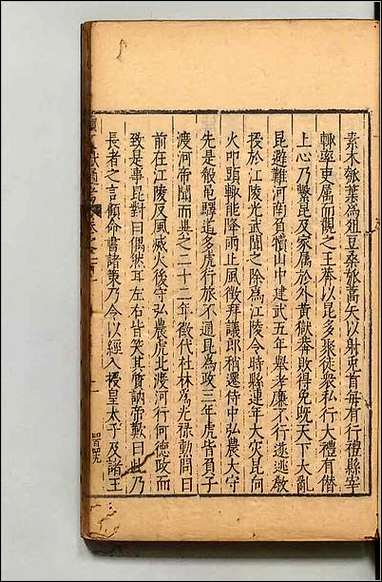 素木瓠葉為俎豆桑弧蒿矢以射兎首每有行禮縣宰
輙率吏屬而觀之王莽以昆多聚徒衆私行大禮有僣
上心乃繫昆及家屬於外黄獄莽敗得免既天下大亂
昆避難河南負犢山中建武五年舉孝廉不行遂逃教
授於江陵光武聞之除為江陵令時縣連年火災昆向
火叩頭輙能降雨止風徴拜議郎稍遷侍中弘農太守
先是殽黽驛道多虎行旅不通昆為政三年虎皆負子
渡河帝聞而異之二十二年徴代杜林為光禄勲問曰
前在江陵反風滅火後守弘農虎北渡河行何德政而
致是事昆對曰偶然耳左右皆笑其質訥帝歎曰此乃
長者之言顧命書諸策乃令以經入授皇太子及諸王